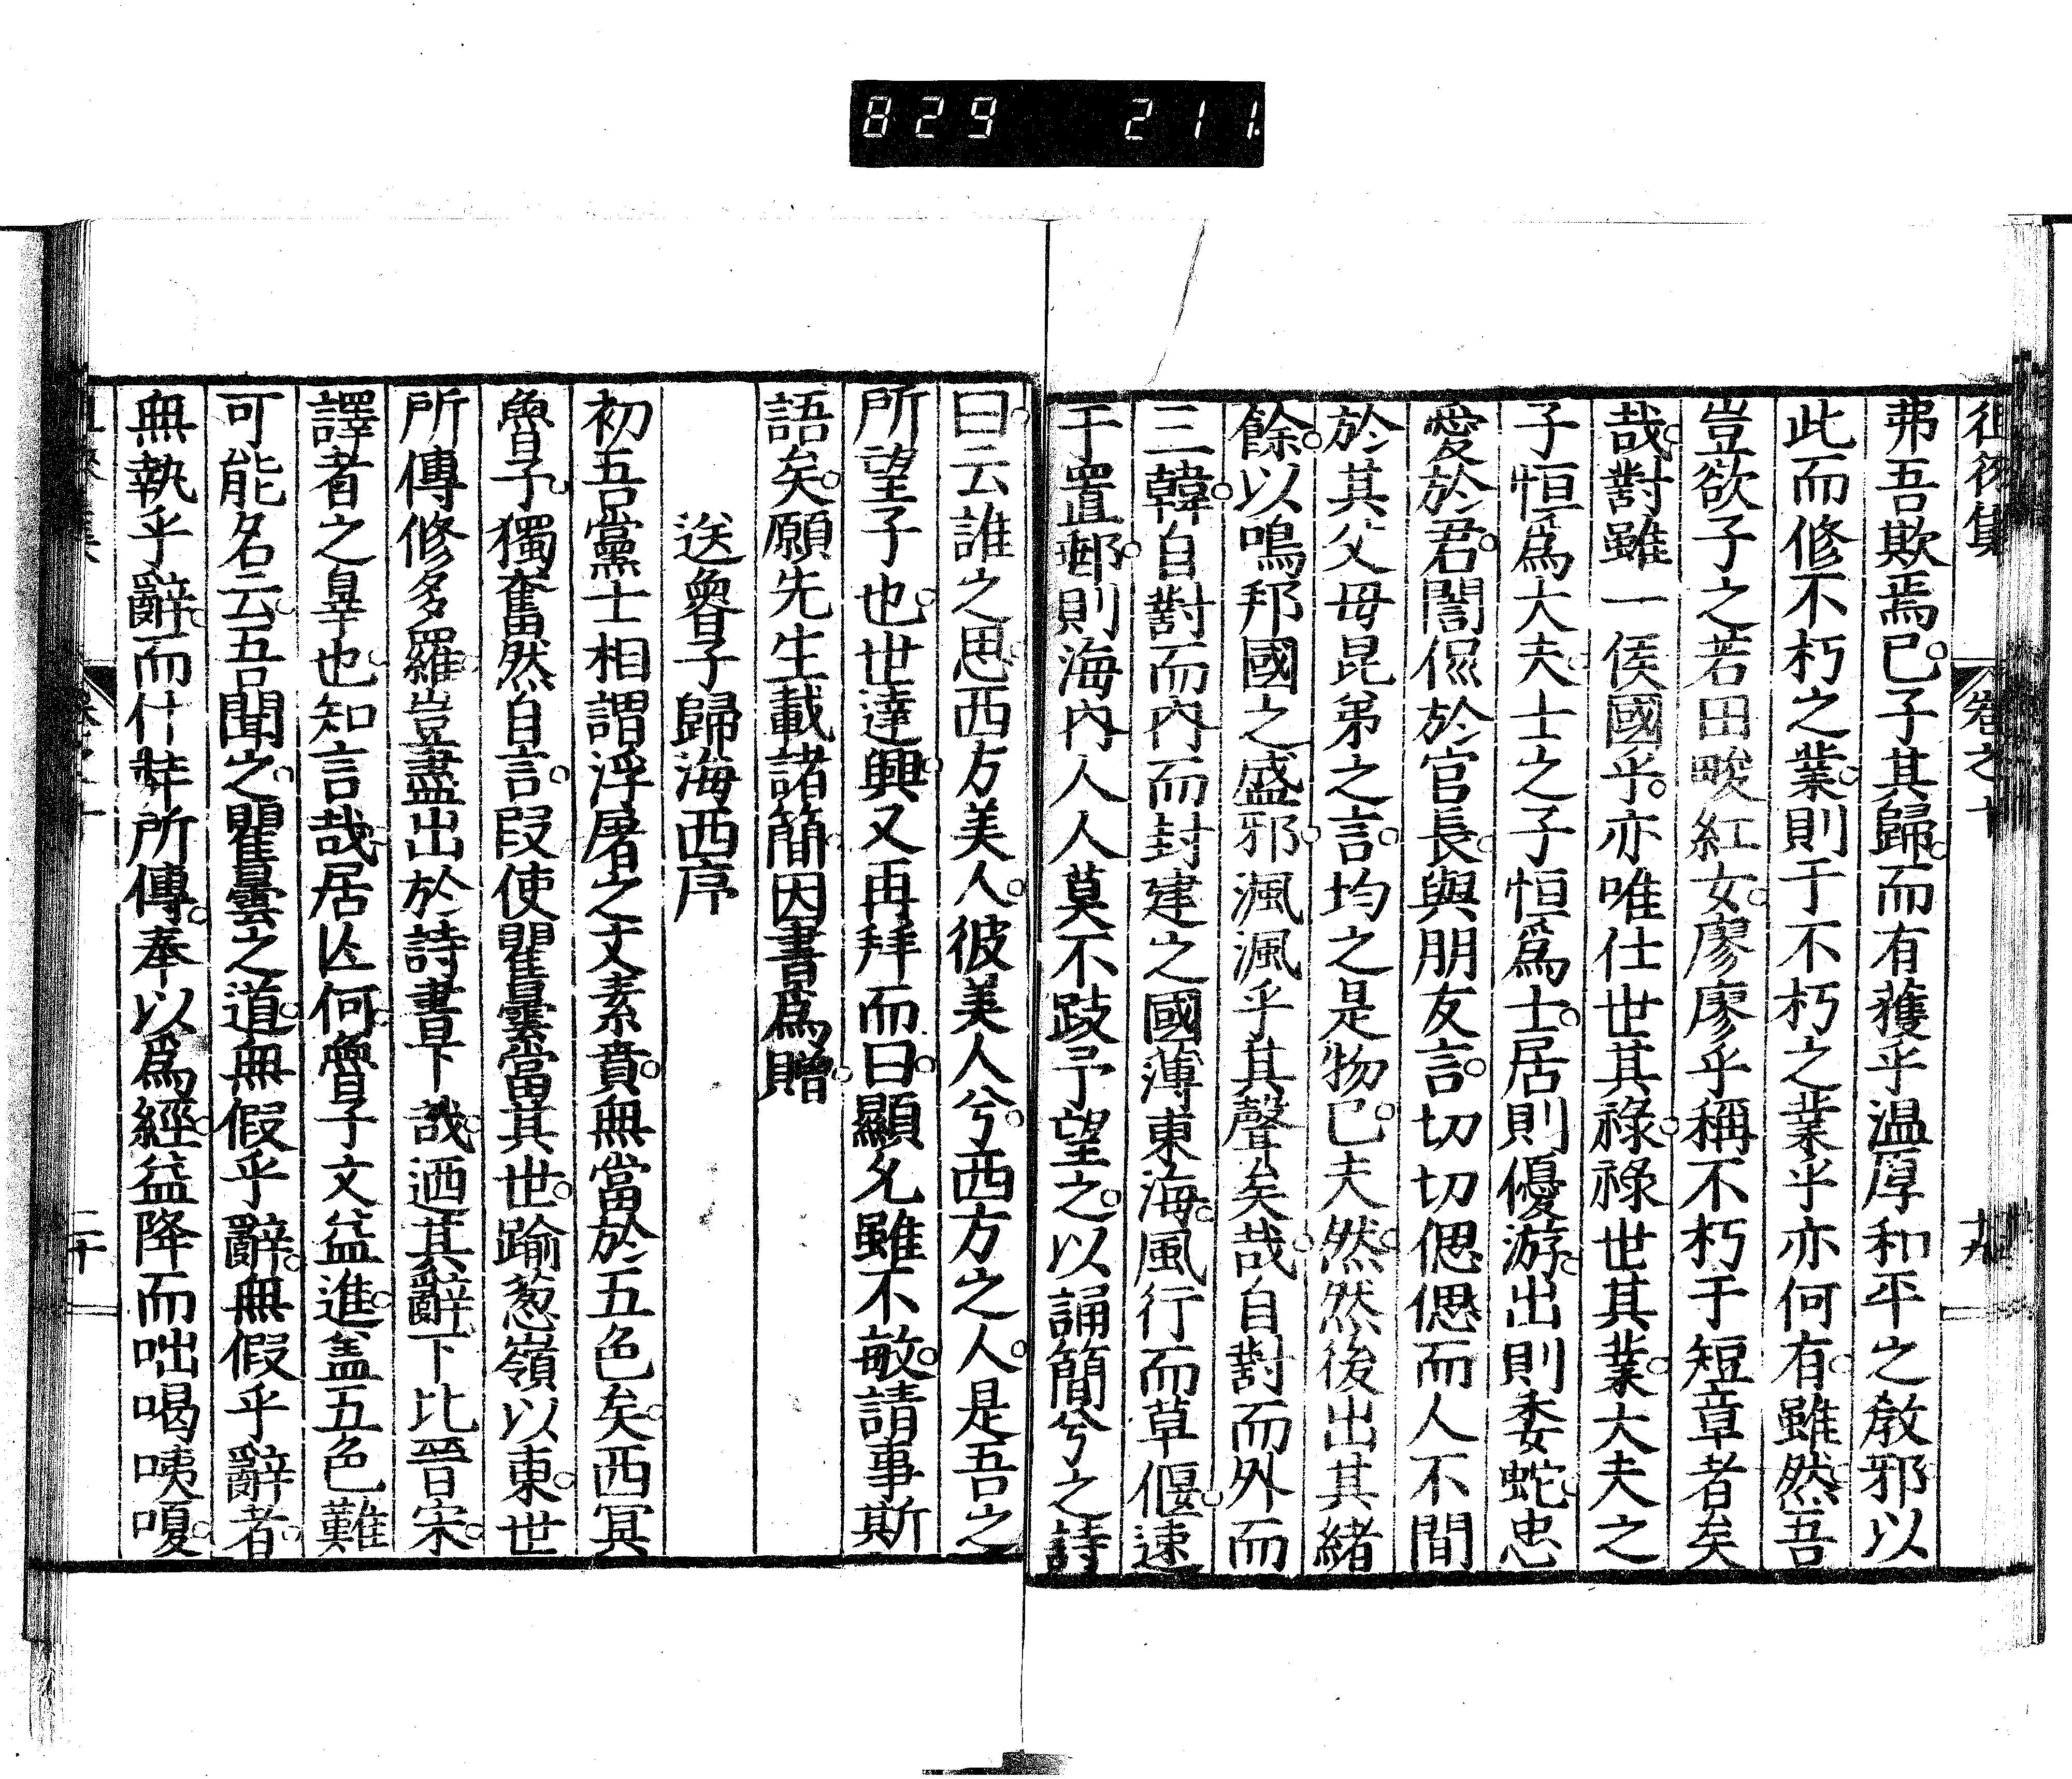 829 211
徂徠集 卷之十 十九
弗吾欺焉已子其歸而有獲乎温厚和平之敎邪以
此而修不朽之業則于不朽之業乎亦何有雖然吾
豈欲子之若田畯紅女廖廖乎稱不朽于短章者矣
哉對雖一侯國乎亦唯仕世其祿祿世其業大夫之
子恒爲大夫士之子恒爲士居則優游出則委蛇忠
愛於君誾侃於官長與朋友言切切偲偲而人不間
於其父母昆弟之言均之是物已夫然然後出其緒
餘以鳴邦國之盛邪渢渢乎其聲矣哉自對而外而
三韓自對而內而封建之國薄東海風行而草偃速
于置郵則海內人人莫不跂予望之以誦簡兮之詩
曰云誰之思西方美人彼美人兮西方之人是吾之
所望子也世達興又再拜而曰顯允雖不敏請事斯
語矣願先生載諸簡因書爲贈
送魯子歸海西序
初吾黨士相謂浮屠之文素賁無當於五色矣西冥
魯子獨奮然自言叚使瞿曇當其世踰葱嶺以東世
所傳修多羅豈盡出於詩書下哉迺其辭下比晉宋
譯者之辠也知言哉居亾何魯子文益進盖五色難
可能名云吾聞之瞿曇之道無假乎辭無假乎辭者
無執乎辭而什弉所傳奉以爲經益降而咄喝咦嗄
二十